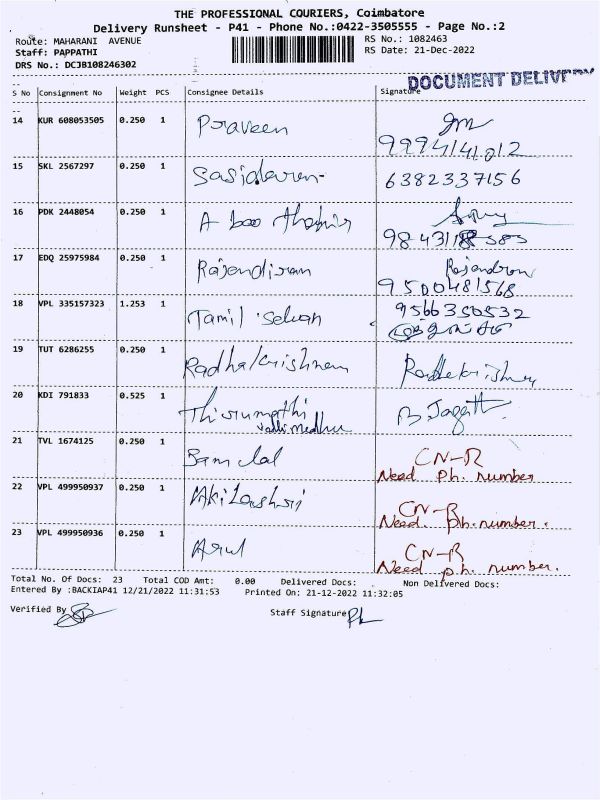 THE PROFESSIONAL COURIERS, Coimbatore
Delivery Runsheet - P41 - Phone No.:0422-3505555 - Page No.:2
Route: MAHARANI AVENUE
RS No.: 1082463
Staff: PAPPATHI
RS Date: 21-Dec-2022
DRS No.: DCJB108246302
DOCUMENT DELIVERY
S No Consignment No Weight PCS Consignee Details Signature
14 KUR 608053505 0.250 1 Praveen
9994141012
15 SKL 2567297 0.250 1 Sasidaren- 6382337156
16 PDK 2448054 0.250 1 A boo thahir
17 EDQ 25975984 0.250 1 Rajendiran Rajendron
9500481568
18 VPL 335157323 1.253 1 Tamil Selvan 9566350532
19 TUT 6286255 0.250 1 Radhakrishnan Radhakrishnan
20 KDI 791833 0.525 1 Thirumathi
21 TVL 1674125 0.250 1 CN-R
Need ph. number
22 VPL 499950937 0.250 1 Akilashri CN-R
Need ph. number.
23 VPL 499950936 0.250 1 Arul CN-R
Need ph. number.
Total No. Of Docs: 23 Total COD Amt: 0.00 Delivered Docs: Non Delivered Docs:
Entered By :BACKIAP41 12/21/2022 11:31:53 Printed On: 21-12-2022 11:32:05
Verified By
Staff Signature